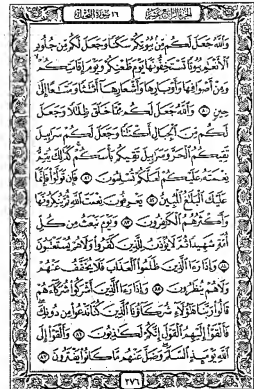 الجزء الرابع عشر ١٦ سورة النحل
وَٱللَّهُ جَعَلَ لَكُم مِّنۢ بُيُوتِكُمْ سَكَنًا وَجَعَلَ لَكُم مِّن جُلُودِ
ٱلْأَنْعَٰمِ بُيُوتًا تَسْتَخِفُّونَهَا يَوْمَ ظَعْنِكُمْ وَيَوْمَ إِقَامَتِكُمْ
وَمِنْ أَصْوَافِهَا وَأَوْبَارِهَا وَأَشْعَارِهَآ أَثَٰثًا وَمَتَٰعًا إِلَىٰ
حِينٍ ٨٠ وَٱللَّهُ جَعَلَ لَكُم مِّمَّا خَلَقَ ظِلَٰلًا وَجَعَلَ
لَكُم مِّنَ ٱلْجِبَالِ أَكْنَٰنًا وَجَعَلَ لَكُمْ سَرَٰبِيلَ
تَقِيكُمُ ٱلْحَرَّ وَسَرَٰبِيلَ تَقِيكُم بَأْسَكُمْ كَذَٰلِكَ يُتِمُّ
نِعْمَتَهُۥ عَلَيْكُمْ لَعَلَّكُمْ تُسْلِمُونَ ٨١ فَإِن تَوَلَّوْا۟ فَإِنَّمَا
عَلَيْكَ ٱلْبَلَٰغُ ٱلْمُبِينُ ٨٢ يَعْرِفُونَ نِعْمَتَ ٱللَّهِ ثُمَّ يُنكِرُونَهَا
وَأَكْثَرُهُمُ ٱلْكَٰفِرُونَ ٨٣ وَيَوْمَ نَبْعَثُ مِن كُلِّ
أُمَّةٍ شَهِيدًا ثُمَّ لَا يُؤْذَنُ لِلَّذِينَ كَفَرُوا۟ وَلَا هُمْ يُسْتَعْتَبُونَ
٨٤ وَإِذَا رَءَا ٱلَّذِينَ ظَلَمُوا۟ ٱلْعَذَابَ فَلَا يُخَفَّفُ عَنْهُمْ
وَلَا هُمْ يُنظَرُونَ ٨٥ وَإِذَا رَءَا ٱلَّذِينَ أَشْرَكُوا۟ شُرَكَآءَهُمْ
قَالُوا۟ رَبَّنَا هَٰٓؤُلَآءِ شُرَكَآؤُنَا ٱلَّذِينَ كُنَّا نَدْعُوا۟ مِن دُونِكَ
فَأَلْقَوْا۟ إِلَيْهِمُ ٱلْقَوْلَ إِنَّكُمْ لَكَٰذِبُونَ ٨٦ وَأَلْقَوْا۟ إِلَى
ٱللَّهِ يَوْمَئِذٍ ٱلسَّلَمَ وَضَلَّ عَنْهُم مَّا كَانُوا۟ يَفْتَرُونَ ٨٧
٢٧٦